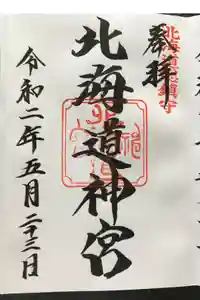 奉拝
北海道総鎮守
北海道神宮
令和二年五月二十三日